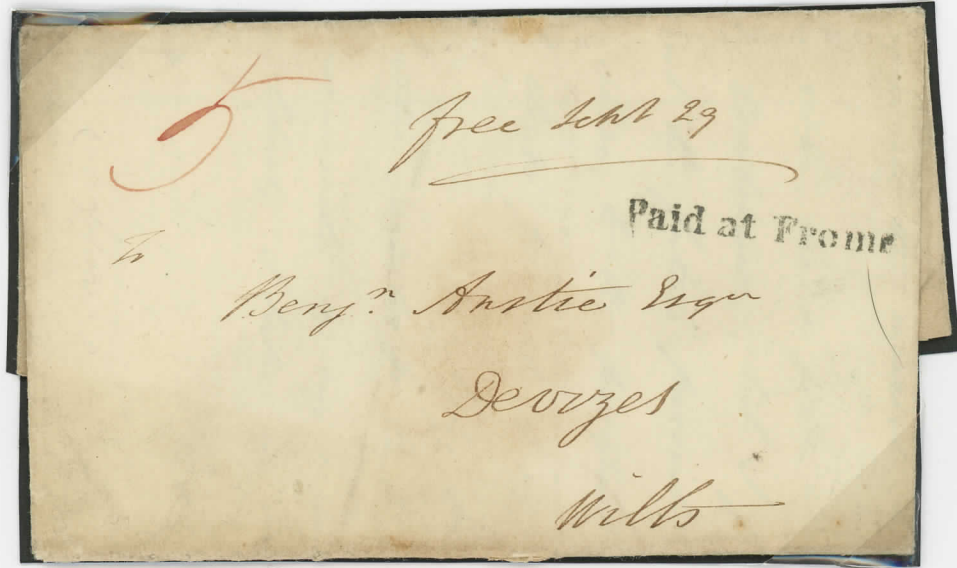 5
free Sept 29
Paid at Frome
To
Benjn. Anstie Esqr
Devizes
Wilts